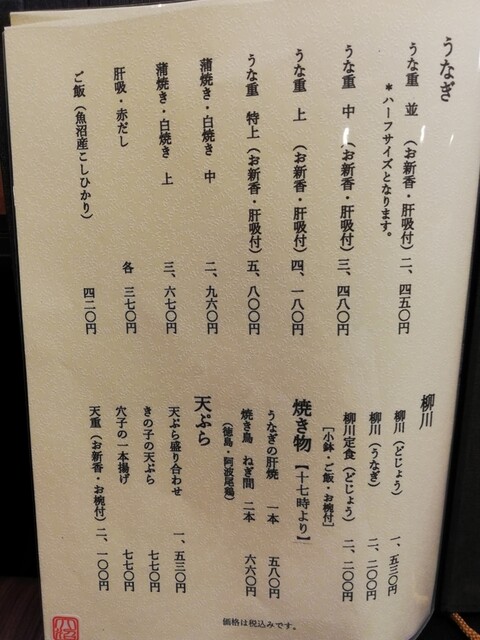 うなぎ
うな重 並 (お新香・肝吸付) 二、四五〇円
*ハーフサイズとなります。
うな重 中 (お新香・肝吸付) 三、四八〇円
うな重 上 (お新香・肝吸付) 四、一八〇円
うな重 特上 (お新香・肝吸付) 五、八〇〇円
蒲焼き・白焼き 中 二、九六〇円
蒲焼き・白焼き 上 三、六七〇円
肝吸・赤だし 各 三七〇円
ご飯 (魚沼産こしひかり) 四二〇円
柳川
柳川 (どじょう) 一、五三〇円
柳川 (うなぎ) 二、二〇〇円
柳川定食 (どじょう) 二、二〇〇円
[小鉢・ご飯・お椀付]
焼き物 【十七時より】
うなぎの肝焼 一本 五八〇円
焼き鳥 ねぎ間 二本 六六〇円
(徳島・阿波尾鶏)
天ぷら
天ぷら盛り合わせ 一、五三〇円
きの子の天ぷら 七七〇円
穴子の一本揚げ 七七〇円
天重 (お新香・お椀付) 二、一〇〇円
価格は税込みです。